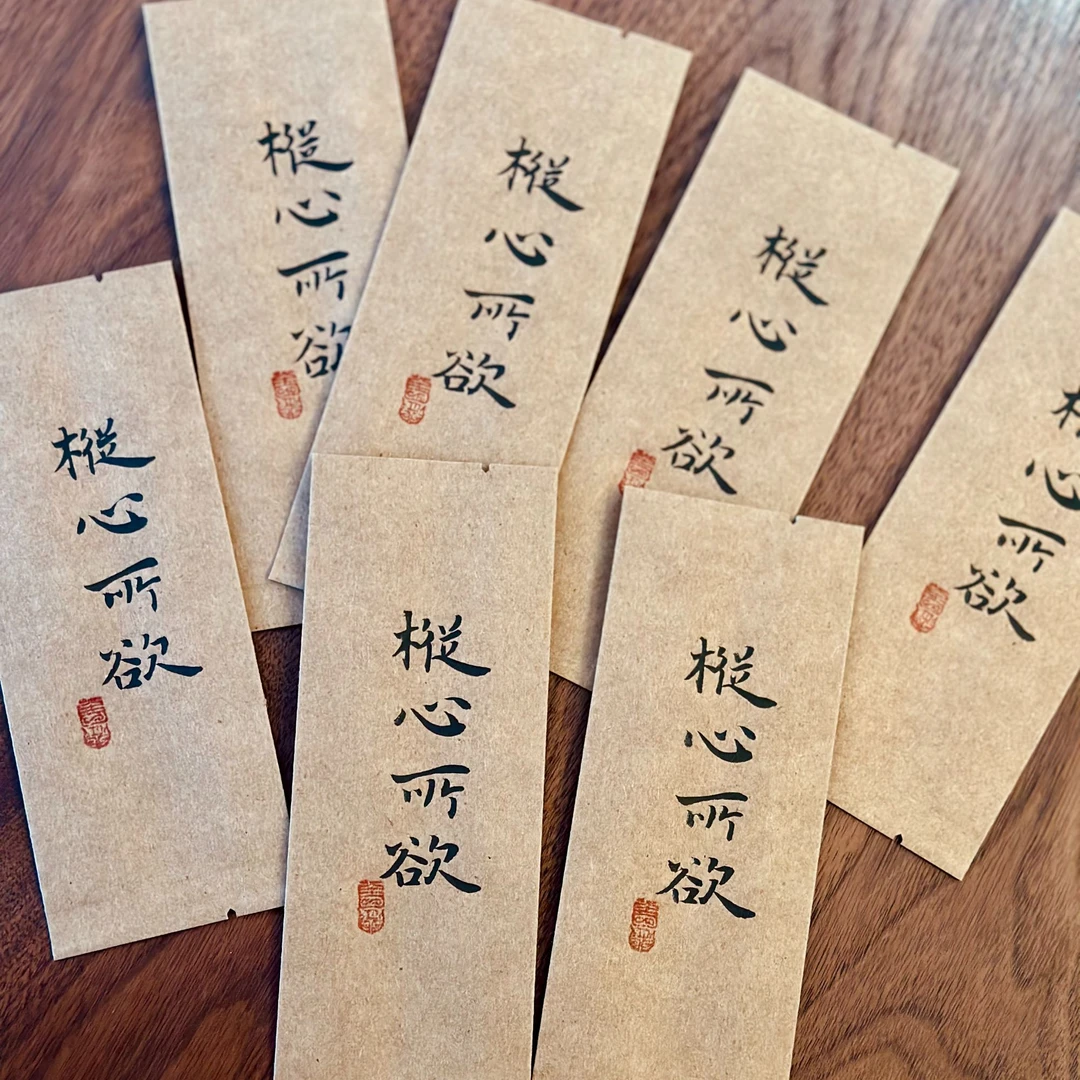 樅心所欲
樅心所欲
樅心所欲
心所欲
樅心所欲
樅心所欲
樅心所欲